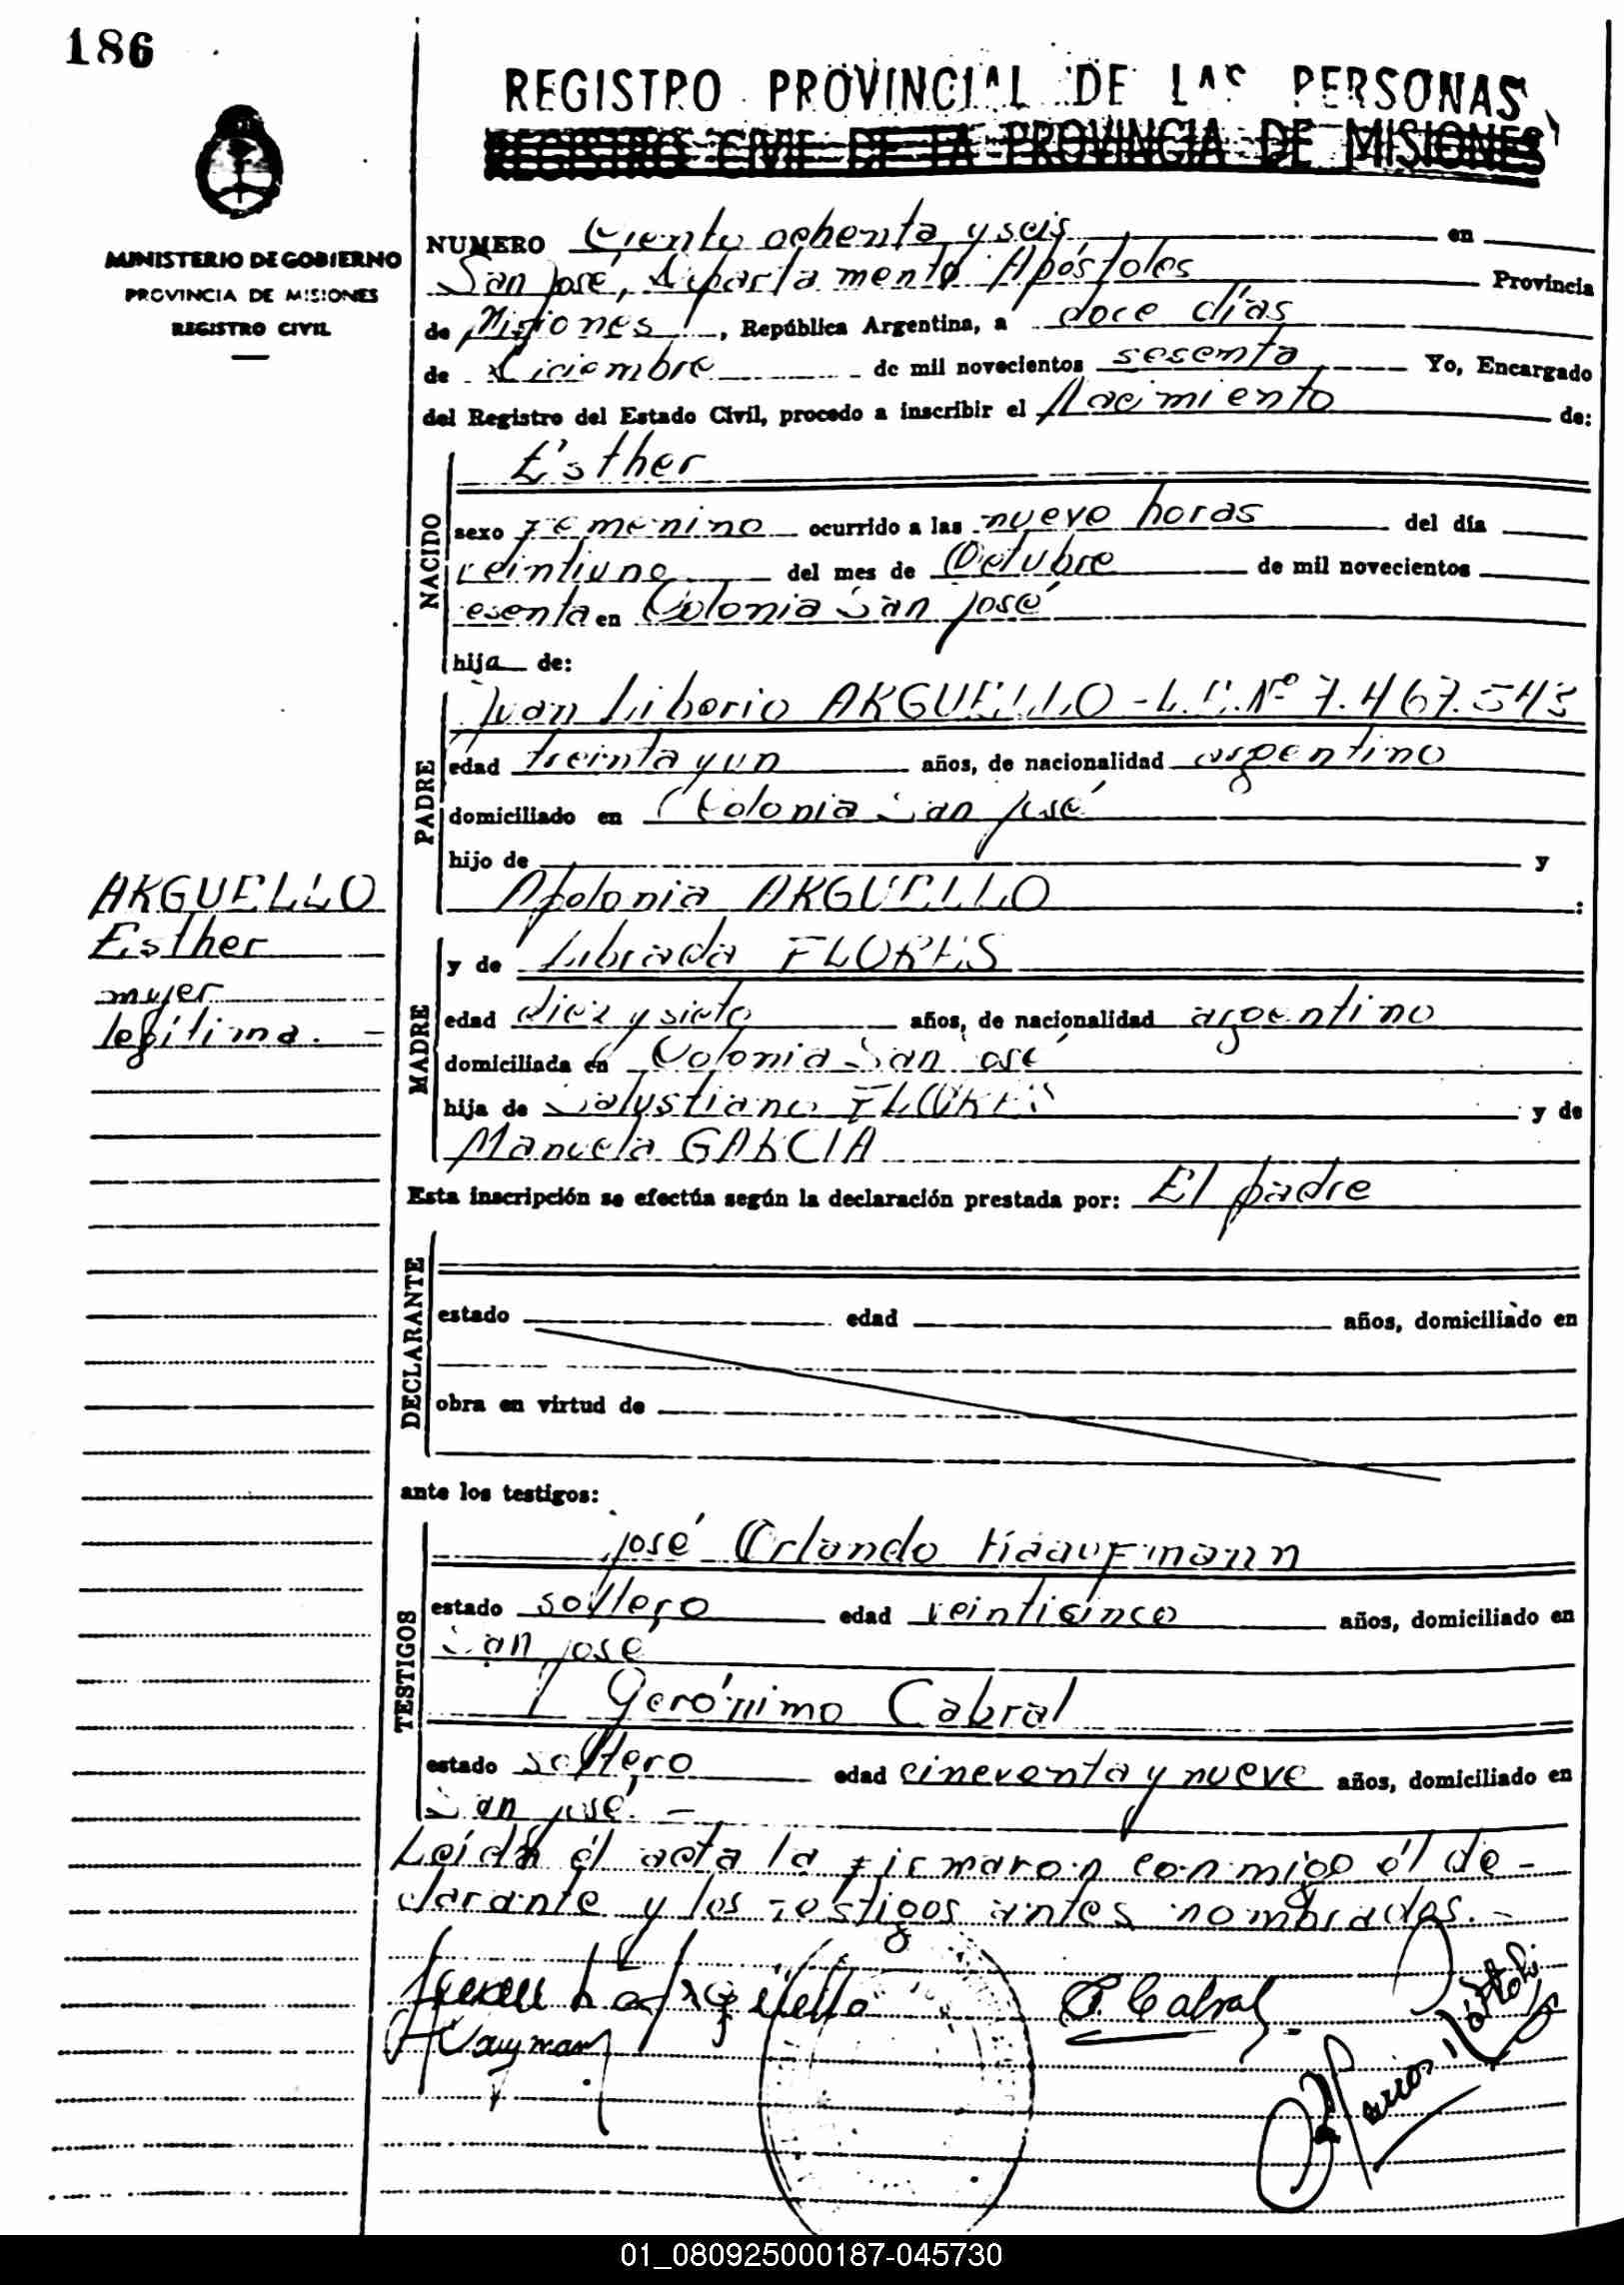 186
REGISTRO PROVINCIAL DE LAS PERSONAS
REGISTRO CIVIL DE LA PROVINCIA DE MISIONES
MINISTERIO DE GOBIERNO
PROVINCIA DE MISIONES
REGISTRO CIVIL
NUMERO Ciento ochenta y seis en
San José, Departamento Apóstoles Provincia
de Misiones, República Argentina, a doce días
de Diciembre de mil novecientos sesenta Yo, Encargado
del Registro del Estado Civil, procedo a inscribir el Nacimiento de:
NACIDO
Esther
sexo Femenino ocurrido a las nueve horas del día
veintiuno del mes de Octubre de mil novecientos
esenta en Colonia San José
hija de:
PADRE
Juan Liborio ARGUELLO - L.E. Nº 7.467.543
edad treinta y un años, de nacionalidad argentino
domiciliado en Colonia San José
hijo de y
Apolonia ARGUELLO :
ARGUELLO
Esther
mujer
legítima. -
MADRE
y de Librada FLORES
edad diez y siete años, de nacionalidad argentino
domiciliada en Colonia San José
hija de Salustiano FLORES y de
Manuela GARCIA
Esta inscripción se efectúa según la declaración prestada por: El padre
DECLARANTE
estado edad años, domiciliado en
obra en virtud de
ante los testigos:
TESTIGOS
José Orlando Kaaufmann
estado soltero edad veinticinco años, domiciliado en
San José
Gerónimo Cabral
estado soltero edad cincuenta y nueve años, domiciliado en
San José. -
Leída el acta la firmaron conmigo el de-
clarante y los testigos antes nombrados. -
Juan L Argüello
G. Cabral
01_080925000187-045730